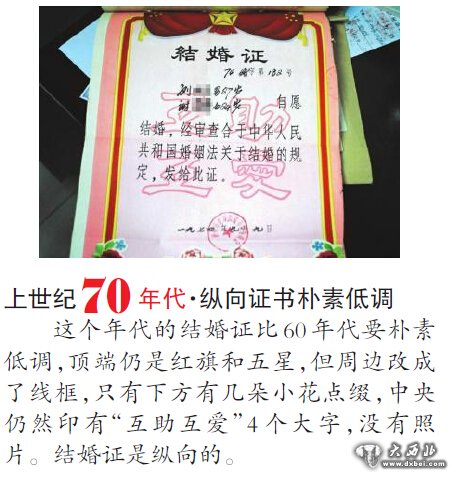 结婚证
字第132号
自愿
结婚，经审查合于中华人民
共和国婚姻法关于结婚的规
定，发给此证。
互助
互爱
上世纪70年代·纵向证书朴素低调
这个年代的结婚证比60年代要朴素
低调，顶端仍是红旗和五星，但周边改成
了线框，只有下方有几朵小花点缀，中央
仍然印有“互助互爱”4个大字，没有照
片。结婚证是纵向的。
大西北
www.dxbei.com